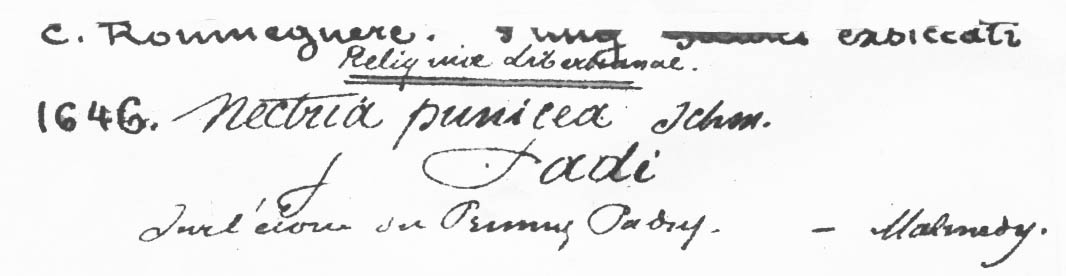 C. Roumeguere. Fungi exsiccati
Reliquiae Libertianae.
1646. Nectria punicea Schm.
f. Padi
Sur l'écorce du Prunus Padus. — Malmedy.